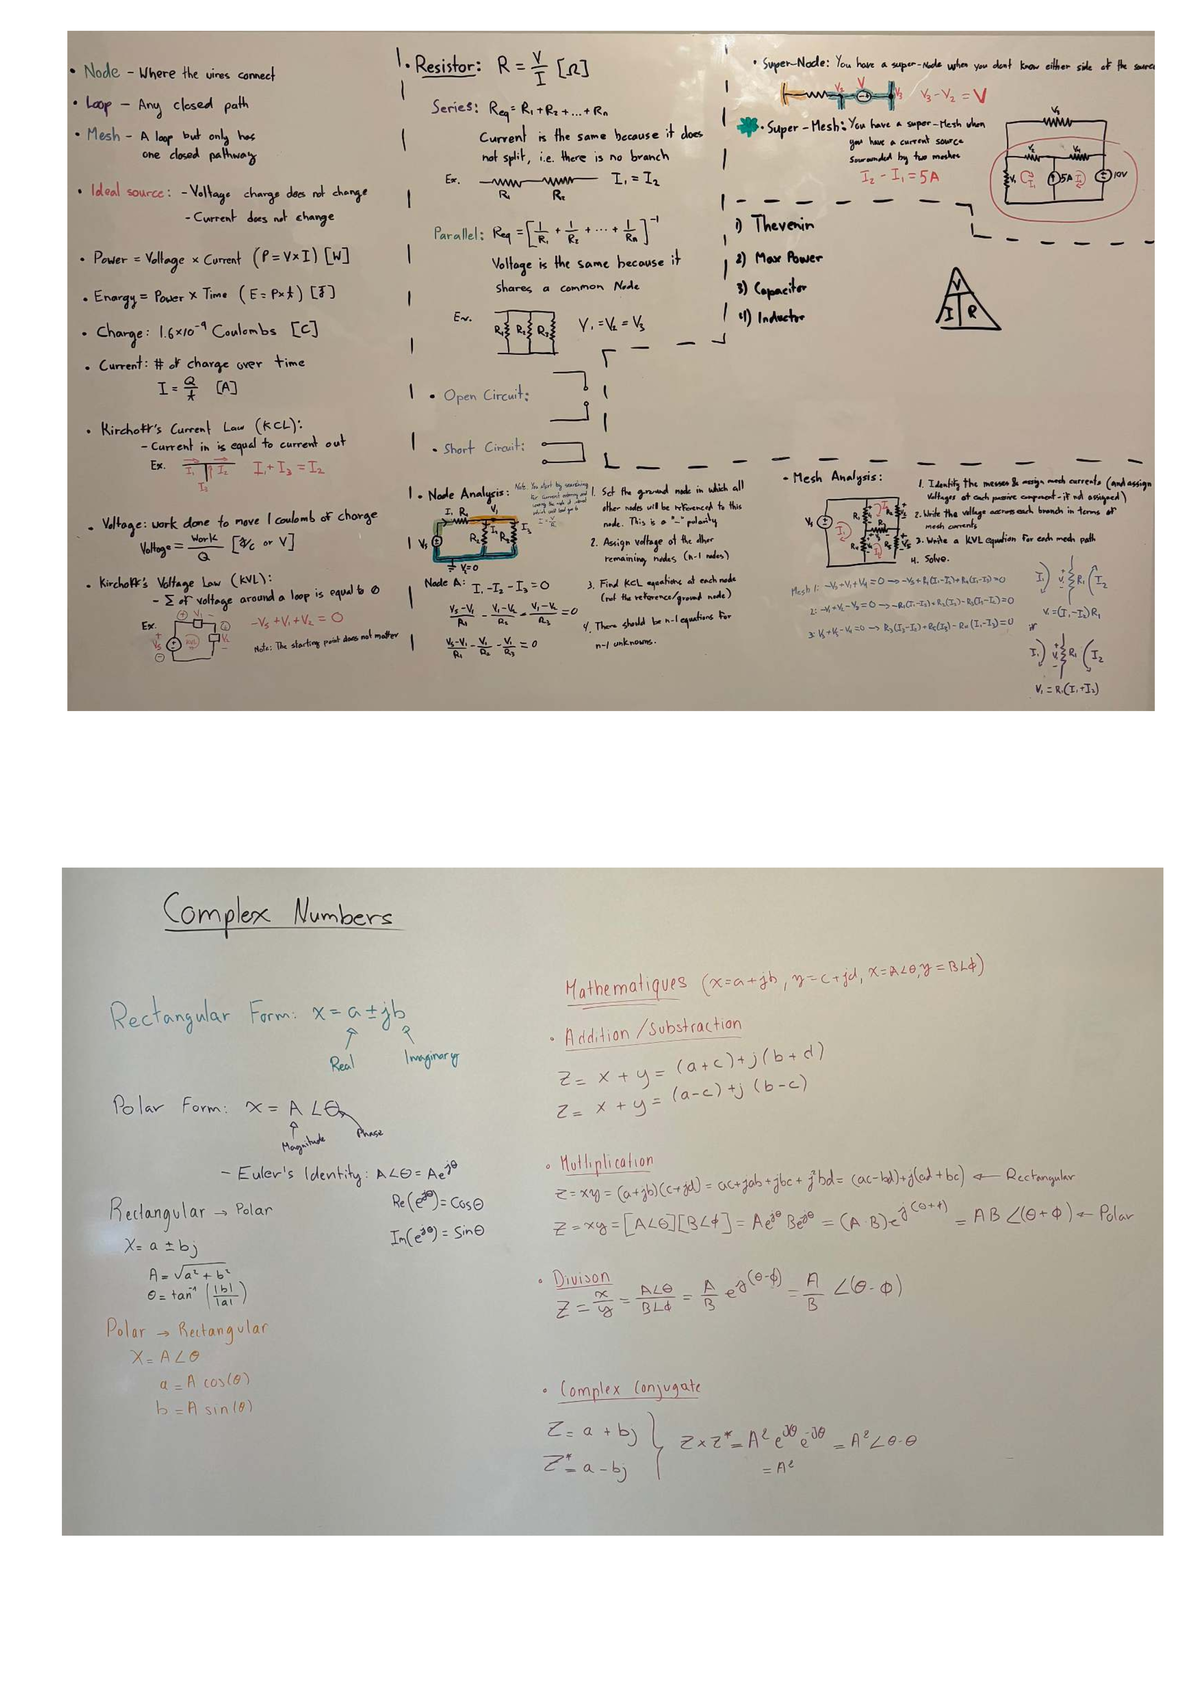 • Node - Where the wires connect
• Loop - Any closed path
• Mesh - A loop but only has
one closed pathway
• Ideal source: - Voltage charge does not change
- Current does not change
• Power = Voltage × Current (P = V×I) [W]
• Enargy = Power × Time (E = P×t) [J]
• Charge: 1.6×10⁻⁹ Coulombs [C]
• Current: # of charge over time
I = Q/t [A]
• Kirchoff's Current Law (KCL):
- Current in is equal to current out
Ex. I₁ I₂ I₃ I₁ + I₃ = I₂
• Voltage: work done to move 1 coulomb of charge
Voltage = Work/Q [J/C or V]
• Kirchoff's Voltage Law (KVL):
- Σ of voltage around a loop is equal to 0
Ex. -Vs + V₁ + V₂ = 0
Note: The starting point does not matter
• Resistor: R = V/I [Ω]
Series: Req = R₁ + R₂ + ... + Rn
Current is the same because it does
not split, i.e. there is no branch
Ex. R₁ R₂ I₁ = I₂
Parallel: Req = [1/R₁ + 1/R₂ + ... + 1/Rn]⁻¹
Voltage is the same because it
shares a common Node
Ex. R₁ R₂ R₃ V₁ = V₂ = V₃
• Open Circuit:
• Short Circuit:
• Node Analysis:
I₁ R₁ V₁
Vs R₂ I₂ R₃ I₃
V = 0
Node A: I₁ - I₂ - I₃ = 0
Vs-V₁/R₁ - V₁-V/R₂ - V₁-V/R₃ = 0
Vs-V₁/R₁ - V₁/R₂ - V₁/R₃ = 0
1. Set the ground node in which all
other nodes will be referenced to this
node. This is a "-" polarity
2. Assign voltage of the other
remaining nodes (n-1 nodes)
3. Find KCL equations at each node
(not the reference/ground node)
4. There should be n-1 equations for
n-1 unknowns.
• Super-Node: You have a super-Node when you dont know either side of the source
V₂ V V₃ V₃ - V₂ = V
• Super-Mesh: You have a super-Mesh when
you have a current source
sourounded by two meshes
I₂ - I₁ = 5A
V₃
V₂ V₄
V₁ I₁ 5A I₂ 10V
1) Thevenin
2) Max Power
3) Capacitor
4) Inductor
V
I R
• Mesh Analysis:
1. Identify the messes & assign mesh currents (and assign
Voltages of each passive component - if not assigned)
2. Write the voltage accross each branch in terms of
mesh currents
3. Write a KVL equation for each mesh path
4. Solve.
V₁ = (I₁ - I₂)R₁
V₁ = R₁(I₁ + I₂)
Complex Numbers
Rectangular Form: x = a ± jb
Real Imaginary
Polar Form: x = A∠θ
Magnitude Phase
- Euler's Identity: A∠θ = Ae^jθ
Re(e^jθ) = Cosθ
Im(e^jθ) = Sinθ
Rectangular → Polar
X = a ± bj
A = √a² + b²
θ = tan⁻¹(|b|/|a|)
Polar → Rectangular
X = A∠θ
a = A cos(θ)
b = A sin(θ)
Mathematiques (x = a + jb, y = c + jd, x = A∠θ, y = B∠φ)
• Addition/Substraction
Z = x + y = (a + c) + j(b + d)
Z = x + y = (a - c) + j(b - c)
• Mutliplication
Z = xy = (a + jb)(c + jd) = ac + jab + jbc + j²bd = (ac - bd) + j(ad + bc) ← Rectangular
Z = xy = [A∠θ][B∠φ] = Ae^jθ Be^jθ = (A·B)e^j(θ+φ) = AB∠(θ + φ) ← Polar
• Divison
Z = x/y = A∠θ/B∠φ = A/B e^j(θ-φ) = A/B ∠(θ - φ)
• Complex Conjugate
Z = a + bj
Z* = a - bj
Z × Z* = A² e^jθ e^-jθ = A²∠θ-θ
= A²